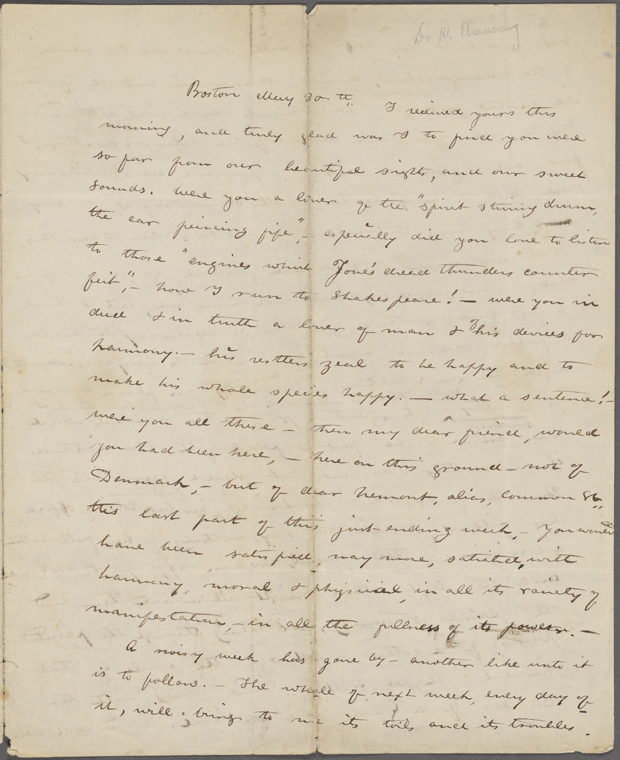 Dr. W. Channing
Boston May 30th. I received yours this
morning, and truly glad was I to find you were
so far from our beautiful sights, and our sweet
sounds. Were you a lover of the "spirit stirring drum,
the ear piercing fife", - especially did you love to listen
to those "engines which Jove's dread thunders counter
feit", - how I run to Shakespeare! - were you in
deed & in truth a lover of man & his devices for
harmony. - his restless zeal to be happy and to
make his whole species happy. - what a sentence! -
were you all these - then my dear friend, would
you had been here, - here on this ground - not of
Denmark, - but of dear Tremont, alias, Common St.,
this last part of this just ending week, - you would
have been satisfied, nay more, satiated, with
harmony, moral & physical, in all its variety of
manifestation, - in all the fullness of its power. -
A noisy week has gone by - another like unto it
is to follow. - The whole of next week, every day of
it, will bring to me its toils and its troubles.